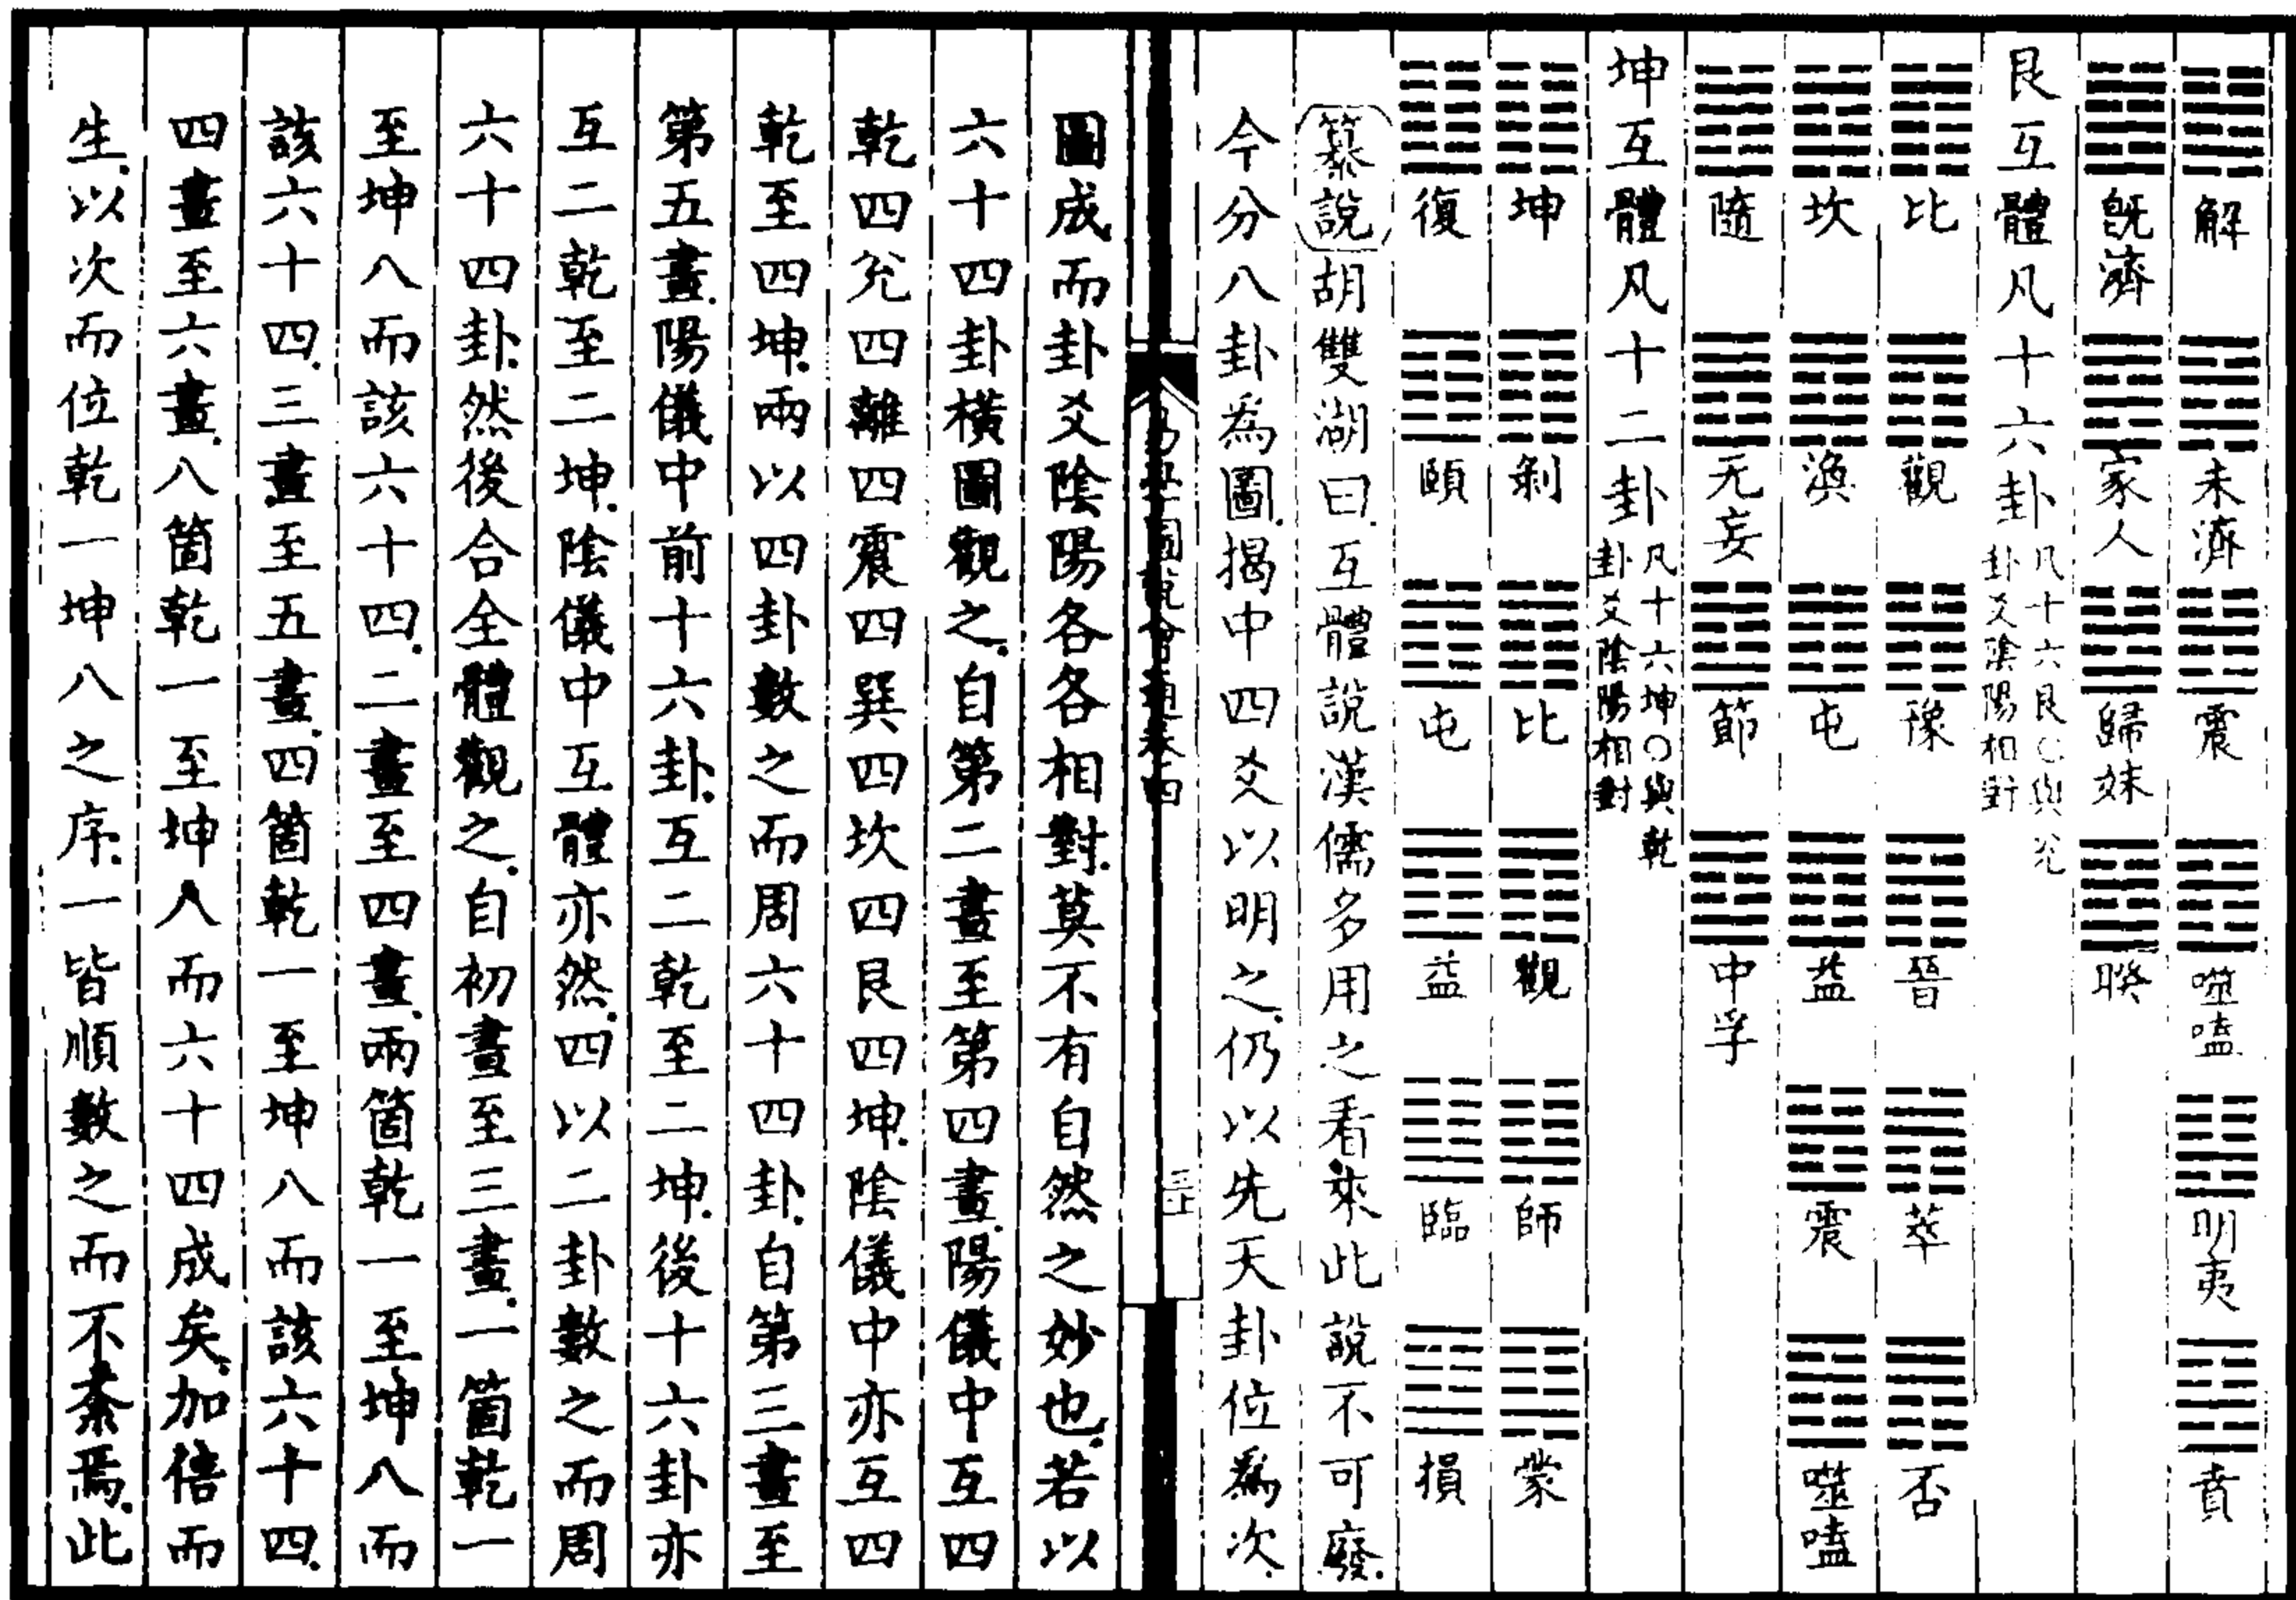 解 未濟 震 噬嗑 明夷 賁
既濟 家人 歸妹 睽
艮互體凡十六卦 凡十六艮○與兌卦爻陰陽相對
比 觀 豫 晉 萃 否
坎 渙 屯 益 震 噬嗑
隨 无妄 節 中孚
坤互體凡十二卦 凡十六坤○與乾卦爻陰陽相對
坤 剝 比 觀 師 蒙
復 頤 屯 益 臨 損
纂說 胡雙湖曰互體說漢儒多用之看來此說不可廢
今分八卦為圖揭中四爻以明之仍以先天卦位為次
易學圖說會通卷四
圖成而卦爻陰陽各各相對莫不有自然之妙也若以
六十四卦橫圖觀之自第二畫至第四畫陽儀中互四
乾四兌四離四震四巽四坎四艮四坤陰儀中亦互四
乾至四坤兩以四卦數之而周六十四卦自第三畫至
第五畫陽儀中前十六卦互二乾至二坤後十六卦亦
互二乾至二坤陰儀中互體亦然四以二卦數之而周
六十四卦然後合全體觀之自初畫至三畫一箇乾一
至坤八而該六十四二畫至四畫兩箇乾一至坤八而
該六十四三畫至五畫四箇乾一至坤八而該六十四
四畫至六畫八箇乾一至坤八而六十四成矣加倍而
生以次而位乾一坤八之序一皆順數之而不紊焉此